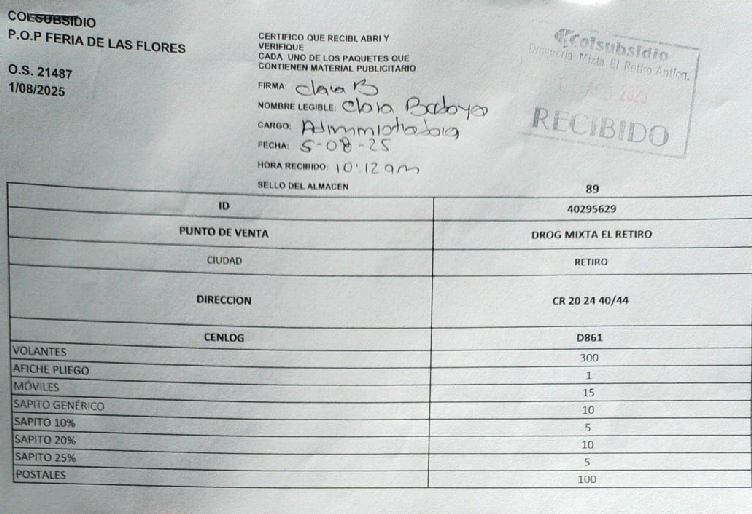 COLSUBSIDIO
P.O.P FERIA DE LAS FLORES
O.S. 21487
1/08/2025
CERTIFICO QUE RECIBI, ABRI Y
VERIFIQUE
CADA UNO DE LOS PAQUETES QUE
CONTIENEN MATERIAL PUBLICITARIO
FIRMA: Clara B
NOMBRE LEGIBLE: Clara Bedoya
CARGO: Administradora
FECHA: 5-08-25
HORA RECIBIDO: 10:12am
SELLO DEL ALMACEN
Colsubsidio
Droguería Mixta El Retiro Antioq.
RECIBIDO
89
ID 40295629
PUNTO DE VENTA DROG MIXTA EL RETIRO
CIUDAD RETIRO
DIRECCION CR 20 24 40/44
CENLOG D861
VOLANTES 300
AFICHE PLIEGO 1
MÓVILES 15
SAPITO GENÉRICO 10
SAPITO 10% 5
SAPITO 20% 10
SAPITO 25% 5
POSTALES 100